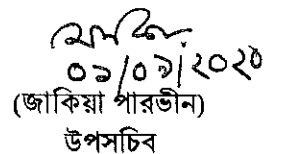 ০১/০১/২০২০
(জাকিয়া পারভীন)
উপসচিব